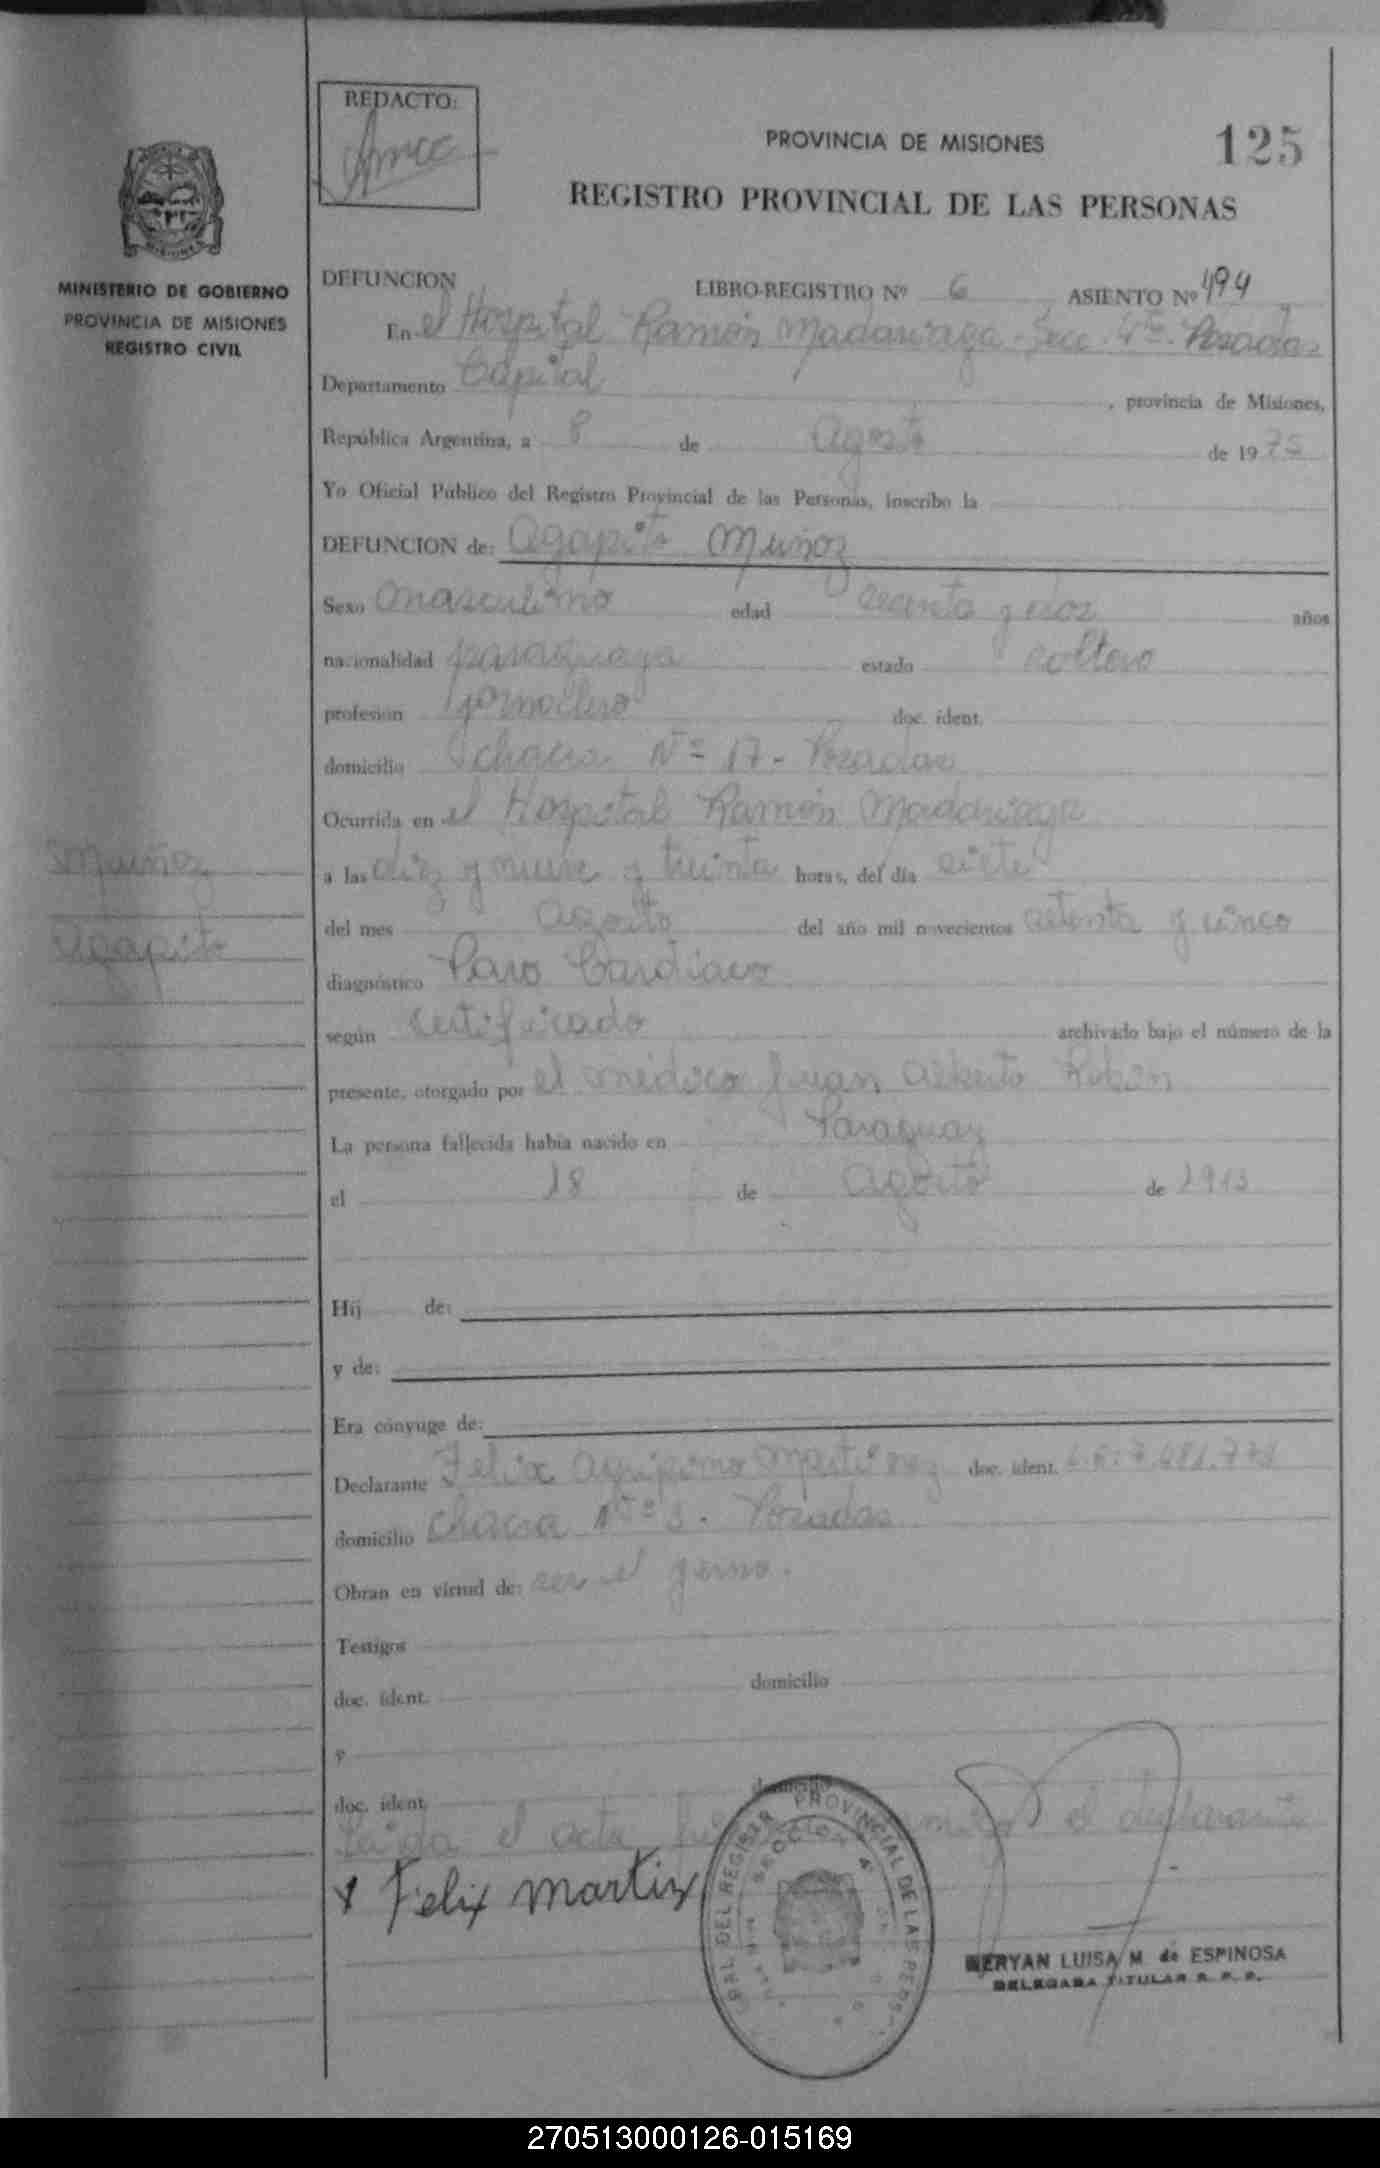 REDACTO:
PROVINCIA DE MISIONES
125
REGISTRO PROVINCIAL DE LAS PERSONAS
MINISTERIO DE GOBIERNO
PROVINCIA DE MISIONES
REGISTRO CIVIL
DEFUNCION LIBRO-REGISTRO Nº 6 ASIENTO Nº 494
En el Hospital Ramón Madariaga. Secc. 4ta. Posadas
Departamento Capital, provincia de Misiones,
República Argentina, a 8 de Agosto de 1975
Yo Oficial Público del Registro Provincial de las Personas, inscribo la
DEFUNCION de: Agapito Muñoz
Sexo masculino edad sesenta y dos años
nacionalidad paraguaya estado soltero
profesión jornalero doc. ident.
domicilio chacra Nº 17 - Posadas
Ocurrida en el Hospital Ramón Madariaga
Muñoz
a las diez y nueve y treinta horas, del día siete
del mes agosto del año mil novecientos setenta y cinco
Agapito
diagnóstico Paro Cardíaco
según certificado archivado bajo el número de la
presente, otorgado por el médico Juan Alberto
La persona fallecida había nacido en Paraguay
el 18 de agosto de 1913
Hij de:
y de:
Era cónyuge de:
Declarante Felix Martinez doc. ident.
domicilio chacra Nº 3. Posadas
Obran en virtud de: ser el yerno.
Testigos
doc. ident. domicilio
y
doc. ident. domicilio
Leida el acta el declarante
x Felix Martinz
REGISTR PROVINCIAL DE LAS PERS
SECCION 4ª
LUISA M. de ESPINOSA
DELEGADA TITULAR R. P. P.
270513000126-015169